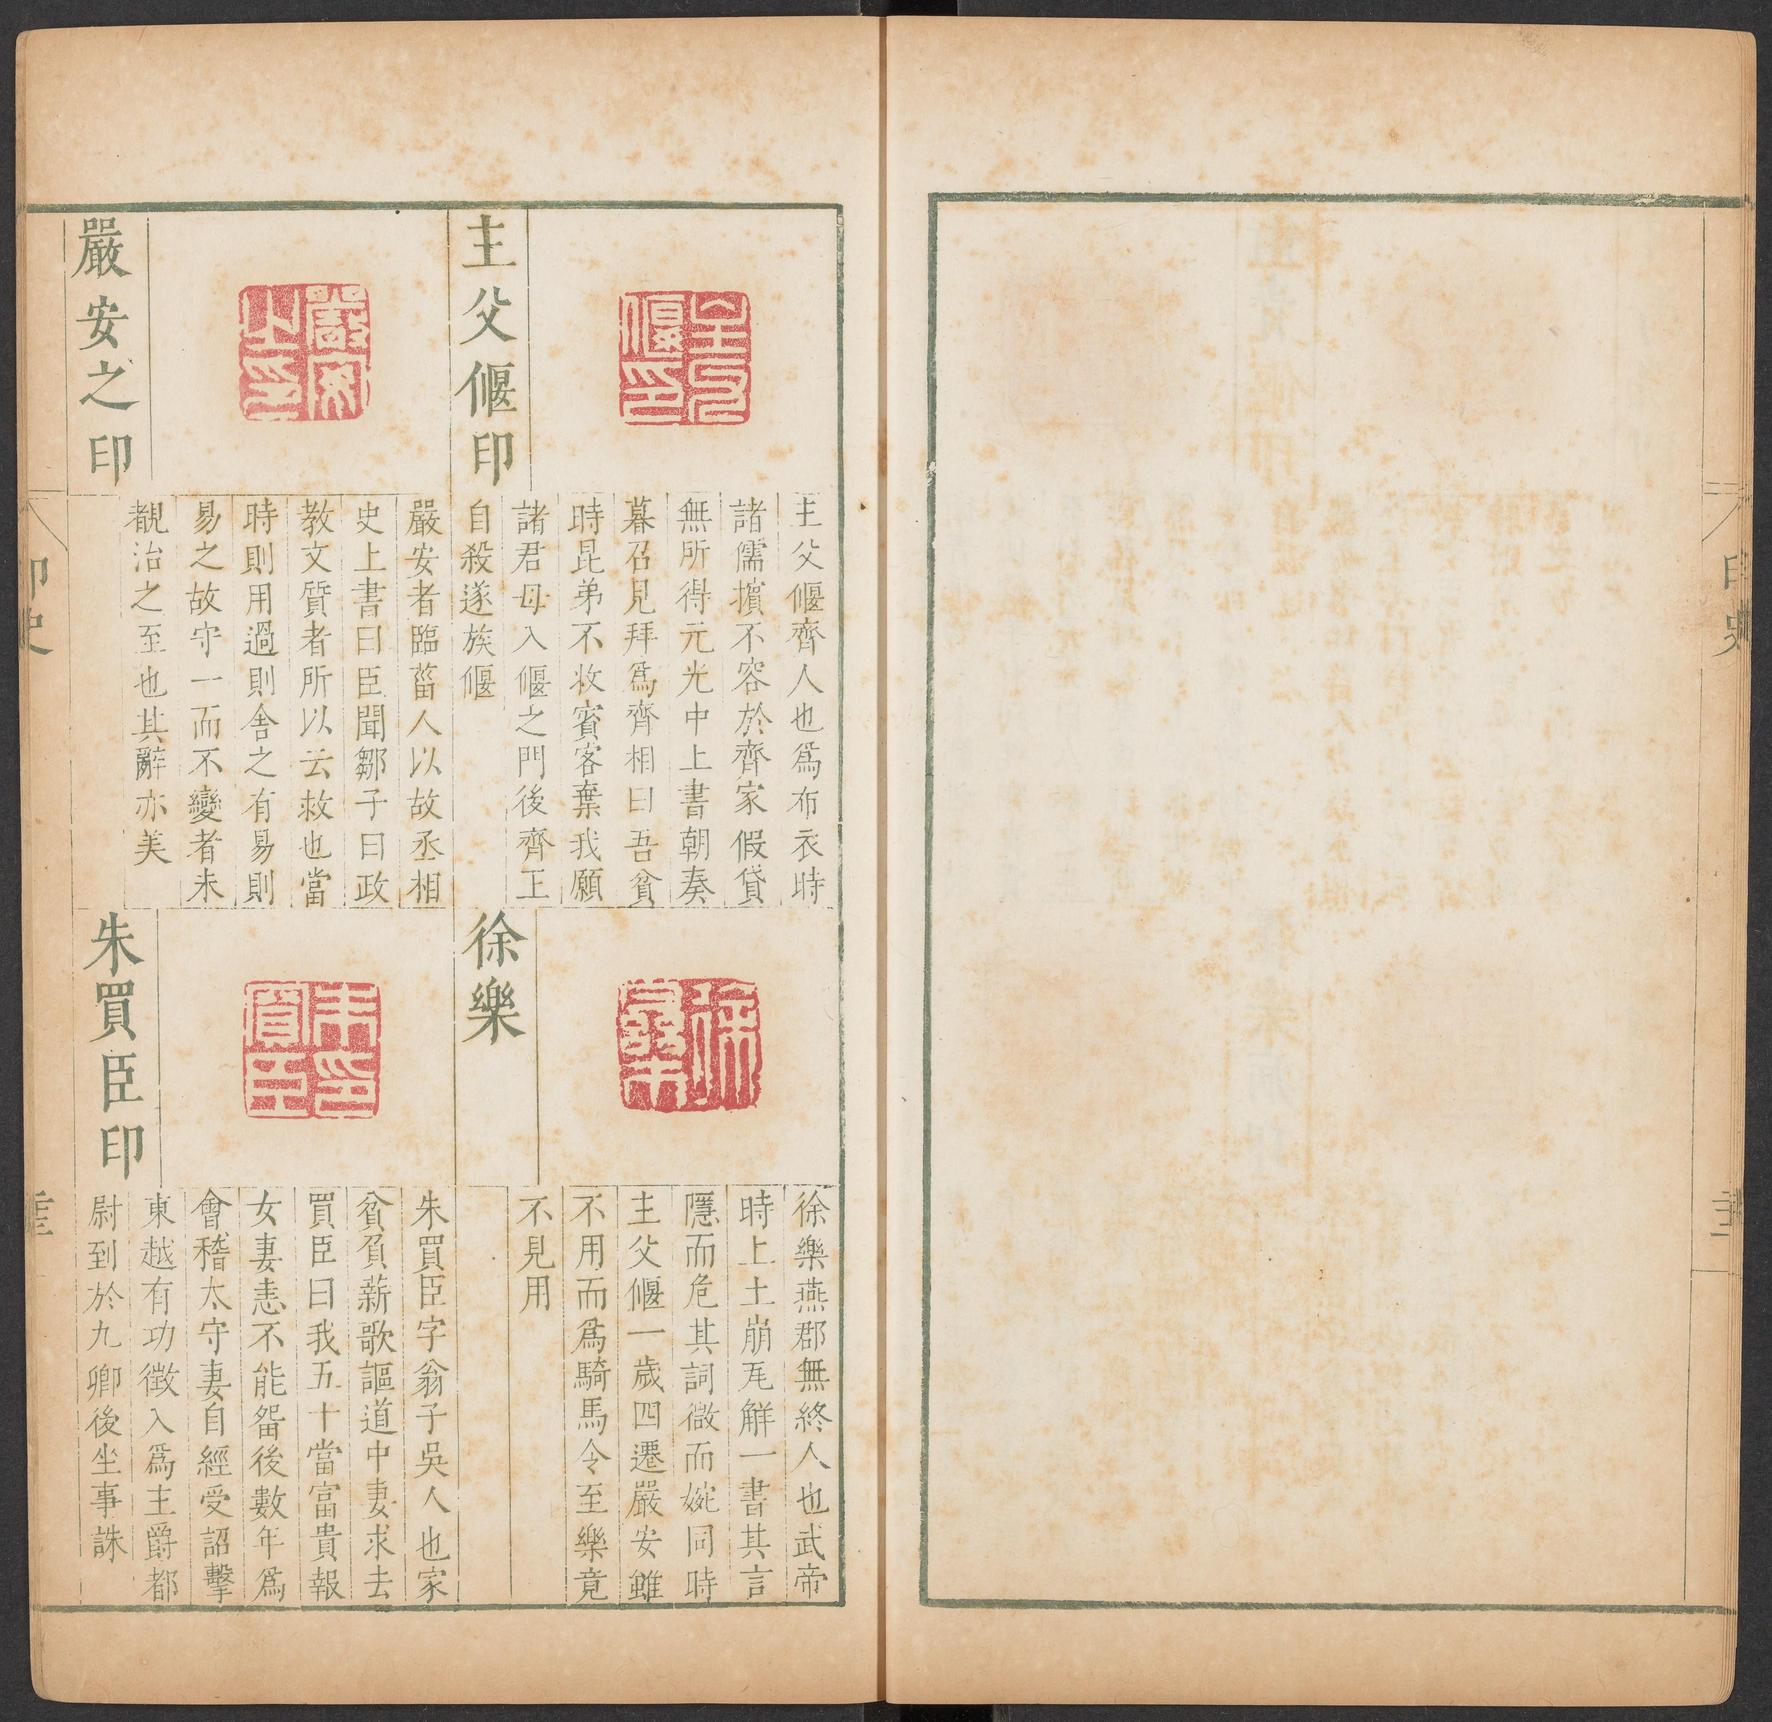 主父偃印
主父偃齊人也爲布衣時
諸儒擯不容於齊家假貸
無所得元光中上書朝奏
暮召見拜爲齊相曰吾貧
時昆弟不收賓客棄我願
諸君母入偃之門後齊王
自殺遂族偃
嚴安之印
嚴安者臨菑人以故丞相
史上書曰臣聞鄒子曰政
教文質者所以云救也當
時則用過則舍之有易則
易之故守一而不變者未
覩治之至也其辭亦美
徐樂
徐樂燕郡無終人也武帝
時上土崩瓦解一書其言
隱而危其詞微而婉同時
主父偃一歲四遷嚴安雖
不用而爲騎馬令至樂竟
不見用
朱買臣印
朱買臣字翁子吳人也家
貧負薪歌謳道中妻求去
買臣曰我五十當富貴報
女妻恚不能畱後數年爲
會稽太守妻自經受詔擊
東越有功徵入爲主爵都
尉到於九卿後坐事誅
印史